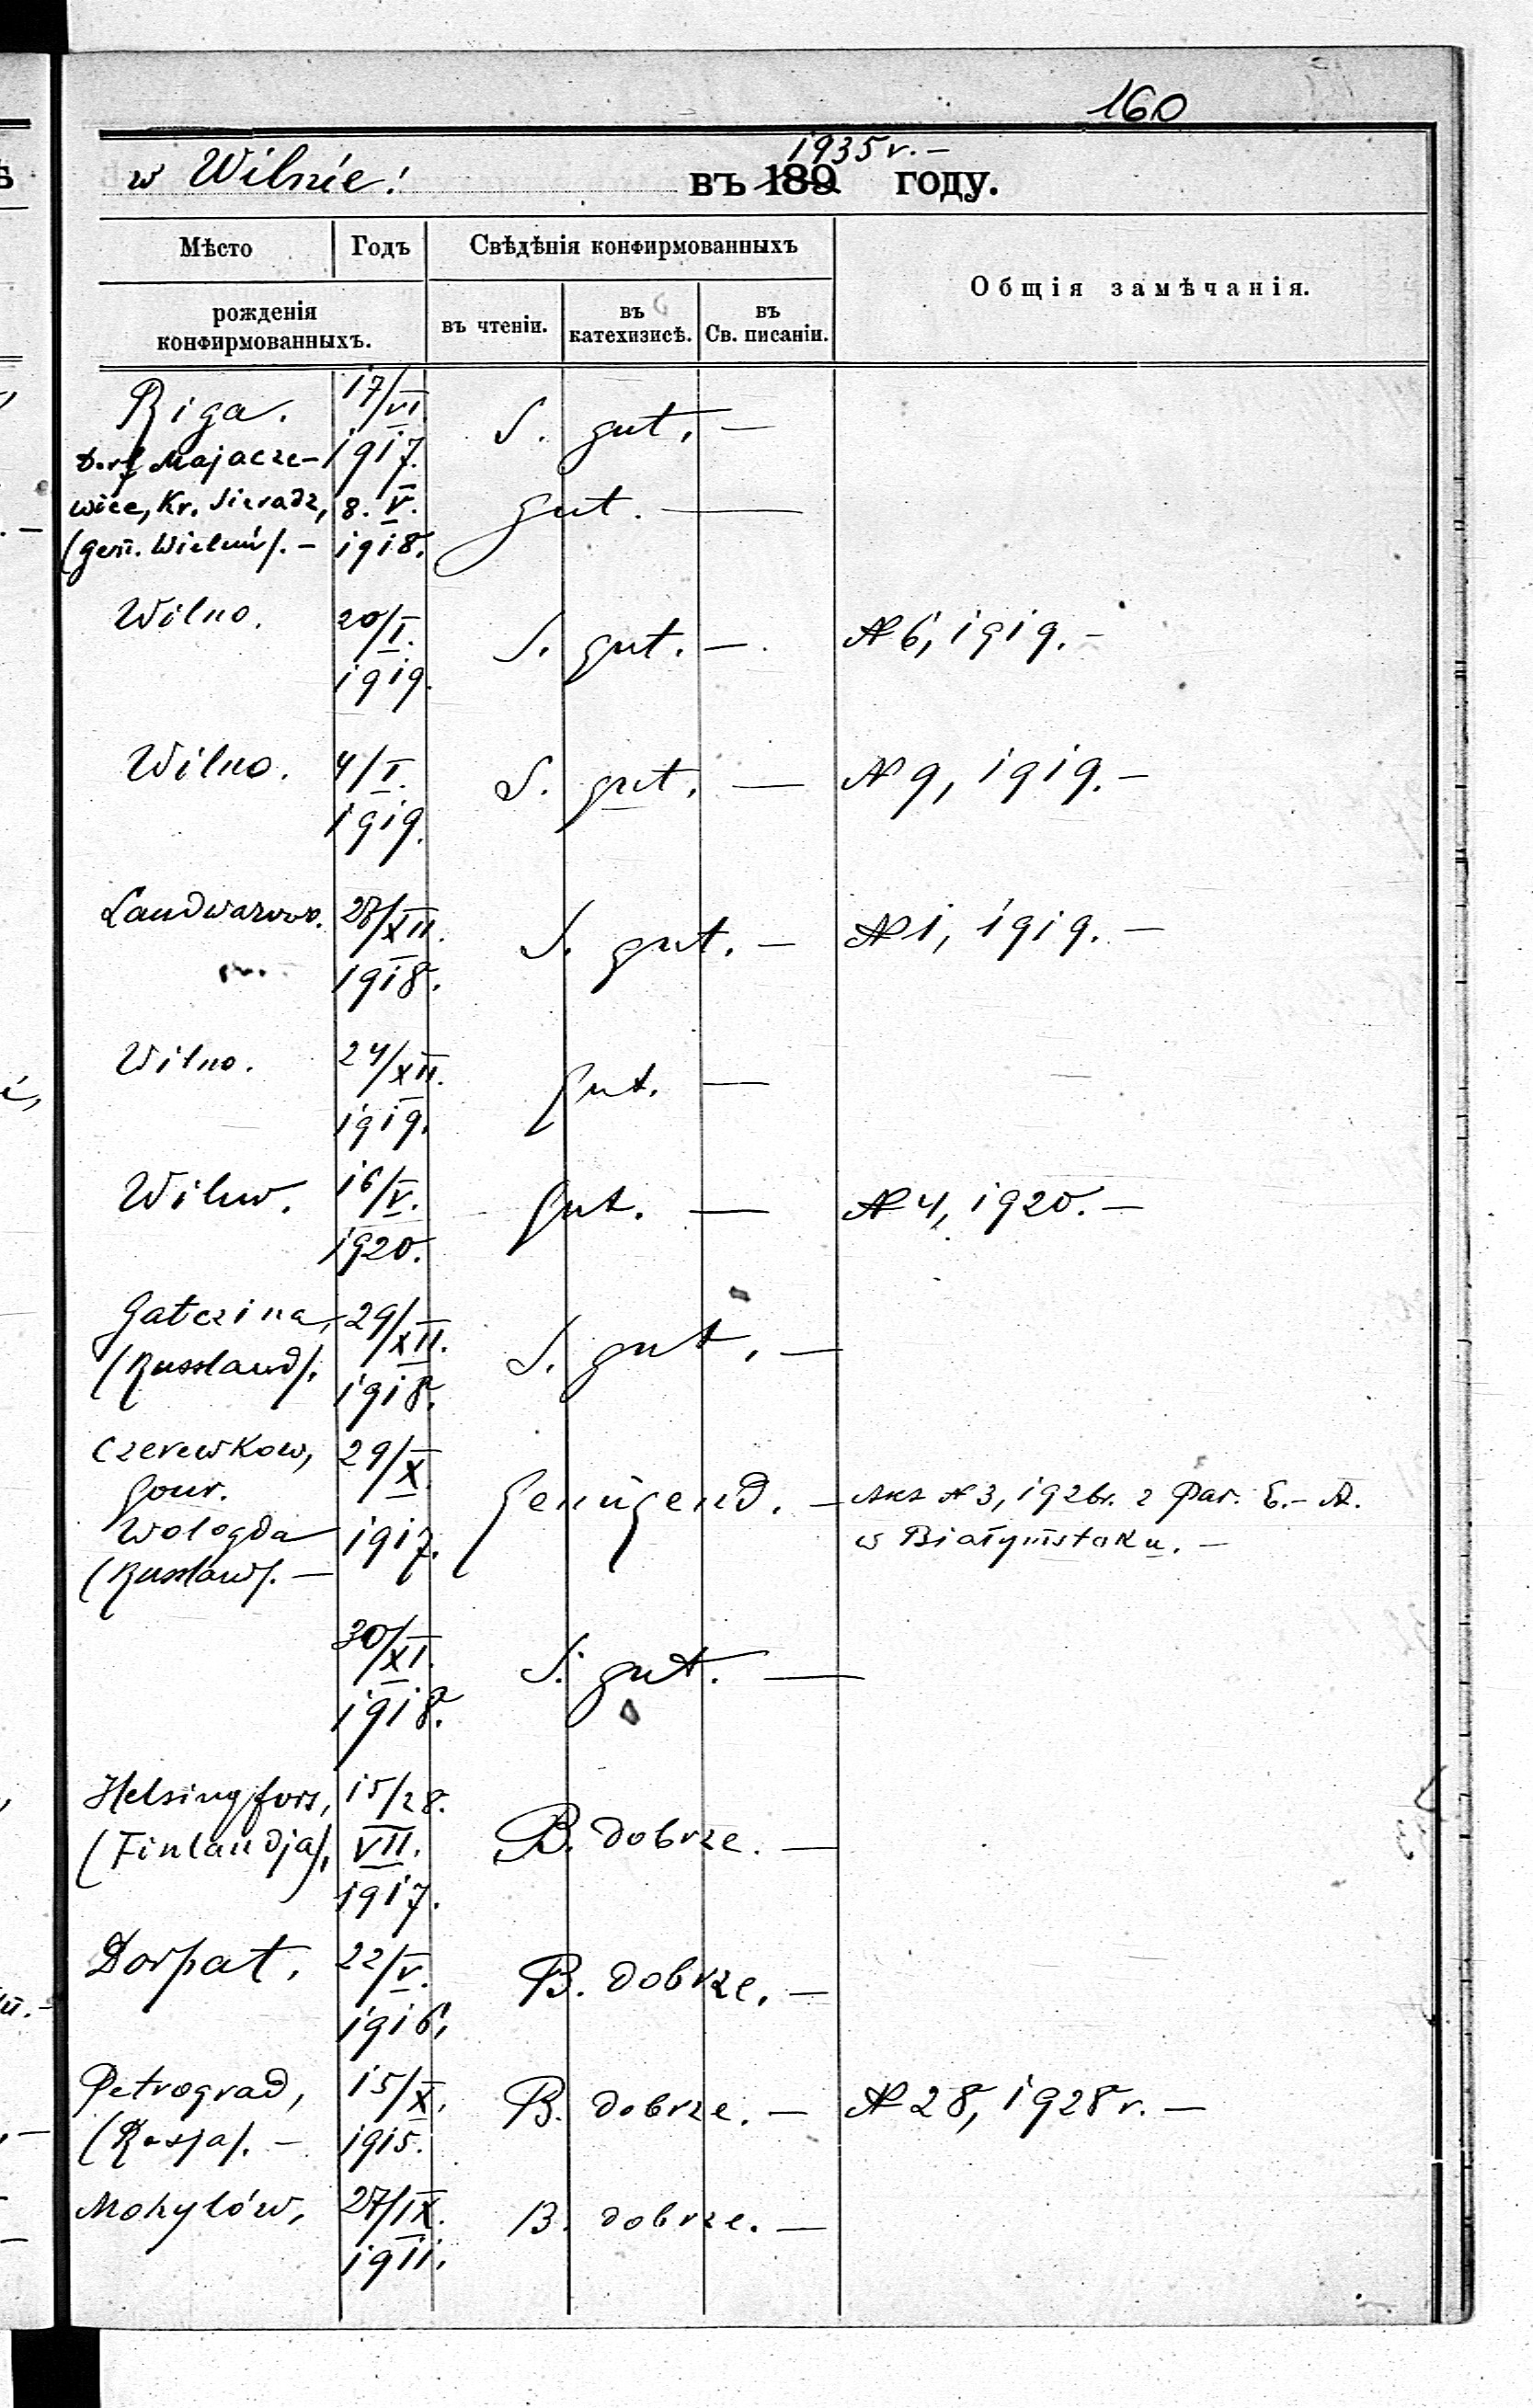 160
w Wilnie!
1935 r. –
въ 189 году.
Мѣсто
Годъ
рожденія
конфирмованныхъ.
Свѣдѣнія конфирмованныхъ
въ чтеніи.
въ
катехизисѣ.
въ
Св. писаніи.
Общія замѣчанія.
Riga. 17/VI. 1917. S. gut. –
Dorf Majacze-
wice, Kr. Sieradz, 8. V. gut. –
(Gem. Wieluń). – 1918.
Wilno. 20/I. S. gut. – № 6, 1919. –
1919.
Wilno. 4/I. S. gut. – № 9, 1919. –
1919.
Landwarowo. 28/XII. S. gut. – № 1, 1919. –
1918.
Wilno. 24/XII. gut. –
1919.
Wilno. 16/V. gut. – № 4, 1920. –
1920.
Gatczina, 29/XII. S. gut. –
(Russland). 1918.
Czerewkow, 29/X.
Gouv. Genügend. – Akt № 3, 1926 r. z Par. E.-A.
Wologda 1917. w Białymstoku. –
(Russland). –
30/XI. S. gut. –
1918.
Helsingfors, 15/28.
(Finlandja), VII. B. dobrze. –
1917.
Dorpat. 22/V. B. dobrze. –
1916.
Petrograd, 15/X. B. dobrze. – № 28, 1928 r. –
(Rosja). – 1915.
Mohylów, 27/IX. B. dobrze. –
1911.